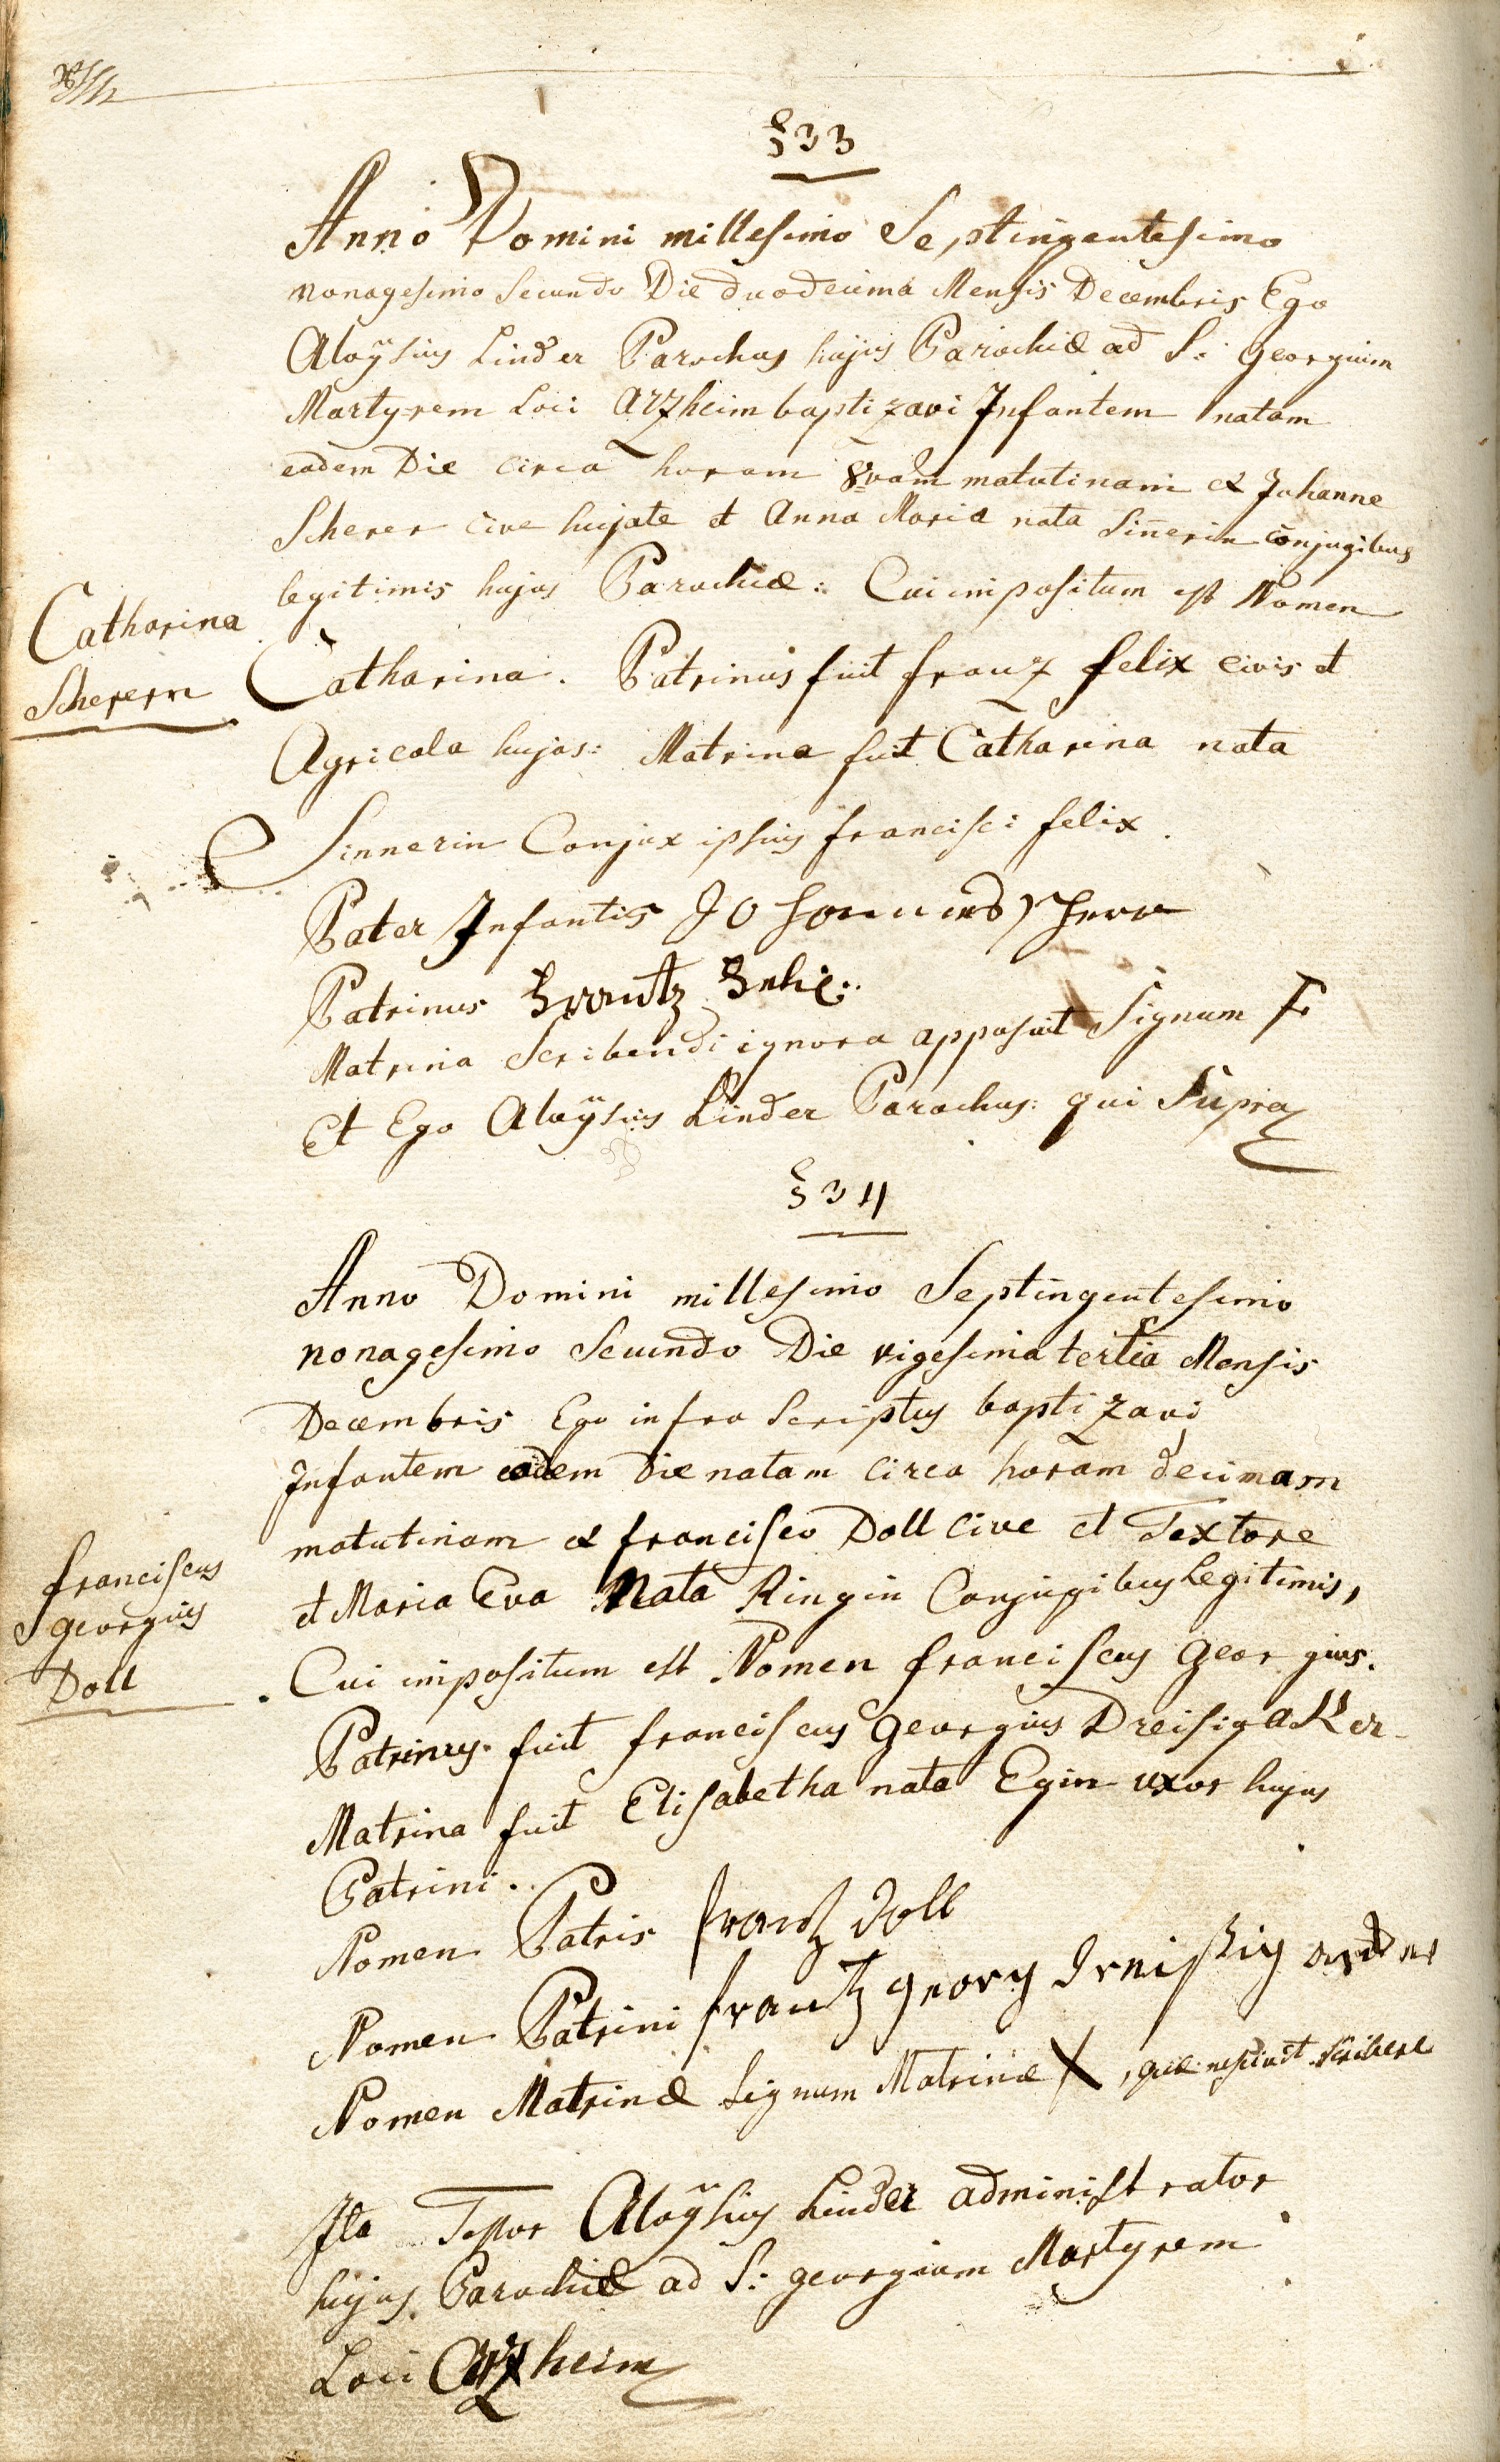 §33
Anno Domini millesimo Septingentesimo
nonagesimo Secundo Die duodecima Mensis Decembris Ego
Aloÿsius Linder Parochus hujus Parochiæ ad S: Georgium
Martyrem Loci Arzheim baptizavi Infantem natam
eadem Die circa horam 8vam matutinam ex Johanne
Scherer cive hujate et Anna Maria nata Siñerin conjugibus
legitimis hujus Parochiæ: Cui impositum est Nomen
Catharina
Scherern
Catharina. Patrinus fuit franz felix civis et
Agricola hujas: Matrina fuit Catharina nata
Sinnerin Conjux ipsius francisci felix.
Pater Infantis Johannes Scherer
Patrinus Frantz Felix
Matrina Scribendi ignora apposuit Signum
Et Ego Aloÿsius Linder Parochus: qui Supra
§34
Anno Domini millesimo Septingentesimo
nonagesimo Secundo Die vigesima tertia Mensis
Decembris Ego infra Scriptus baptizavi
Infantem eadem Die natam circa horam decimam
matutinam ex francisco Doll cive et Textore
et Maria Eva Nata Ringin Conjugibus Legitimis,
franciscus
georgius
Doll
Cui impositum est Nomen franciscus georgius.
Patrinus fuit franciscus georgius Dreisigaker
Matrina fuit Elisabetha nata Egin uxor hujus
Patrini.
Nomen Patris frantz Doll
Nomen Patrini frantz georg Dreißig
Nomen Matrinæ Signum Matrinæ X, quæ nescivit scribere
Ita Testor Aloÿsius Linder administrator
hujus Parochiæ ad S: georgium Martyrem
Loci Arzheim